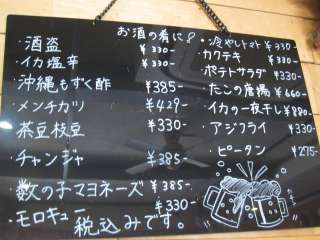 お酒の肴に?
・酒盗 ¥330-
・イカ塩辛 ¥330-
・沖縄もずく酢 ¥385-
・メンチカツ ¥429-
・茶豆枝豆 ¥330-
・チャンジャ ¥385-
・数の子マヨネーズ ¥385-
・モロキュー ¥330-
・冷やしトマト ¥330-
・カクテキ ¥330-
・ポテトサラダ ¥330-
・たこの唐揚 ¥660-
・イカの一夜干し ¥880-
・アジフライ ¥330-
・ピータン ¥275-
税込みです。